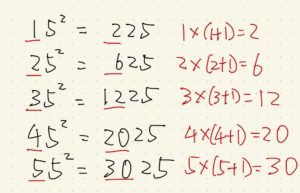 15² = 225 1×(1+1)=2
25² = 625 2×(2+1)=6
35² = 1225 3×(3+1)=12
45² = 2025 4×(4+1)=20
55² = 3025 5×(5+1)=30